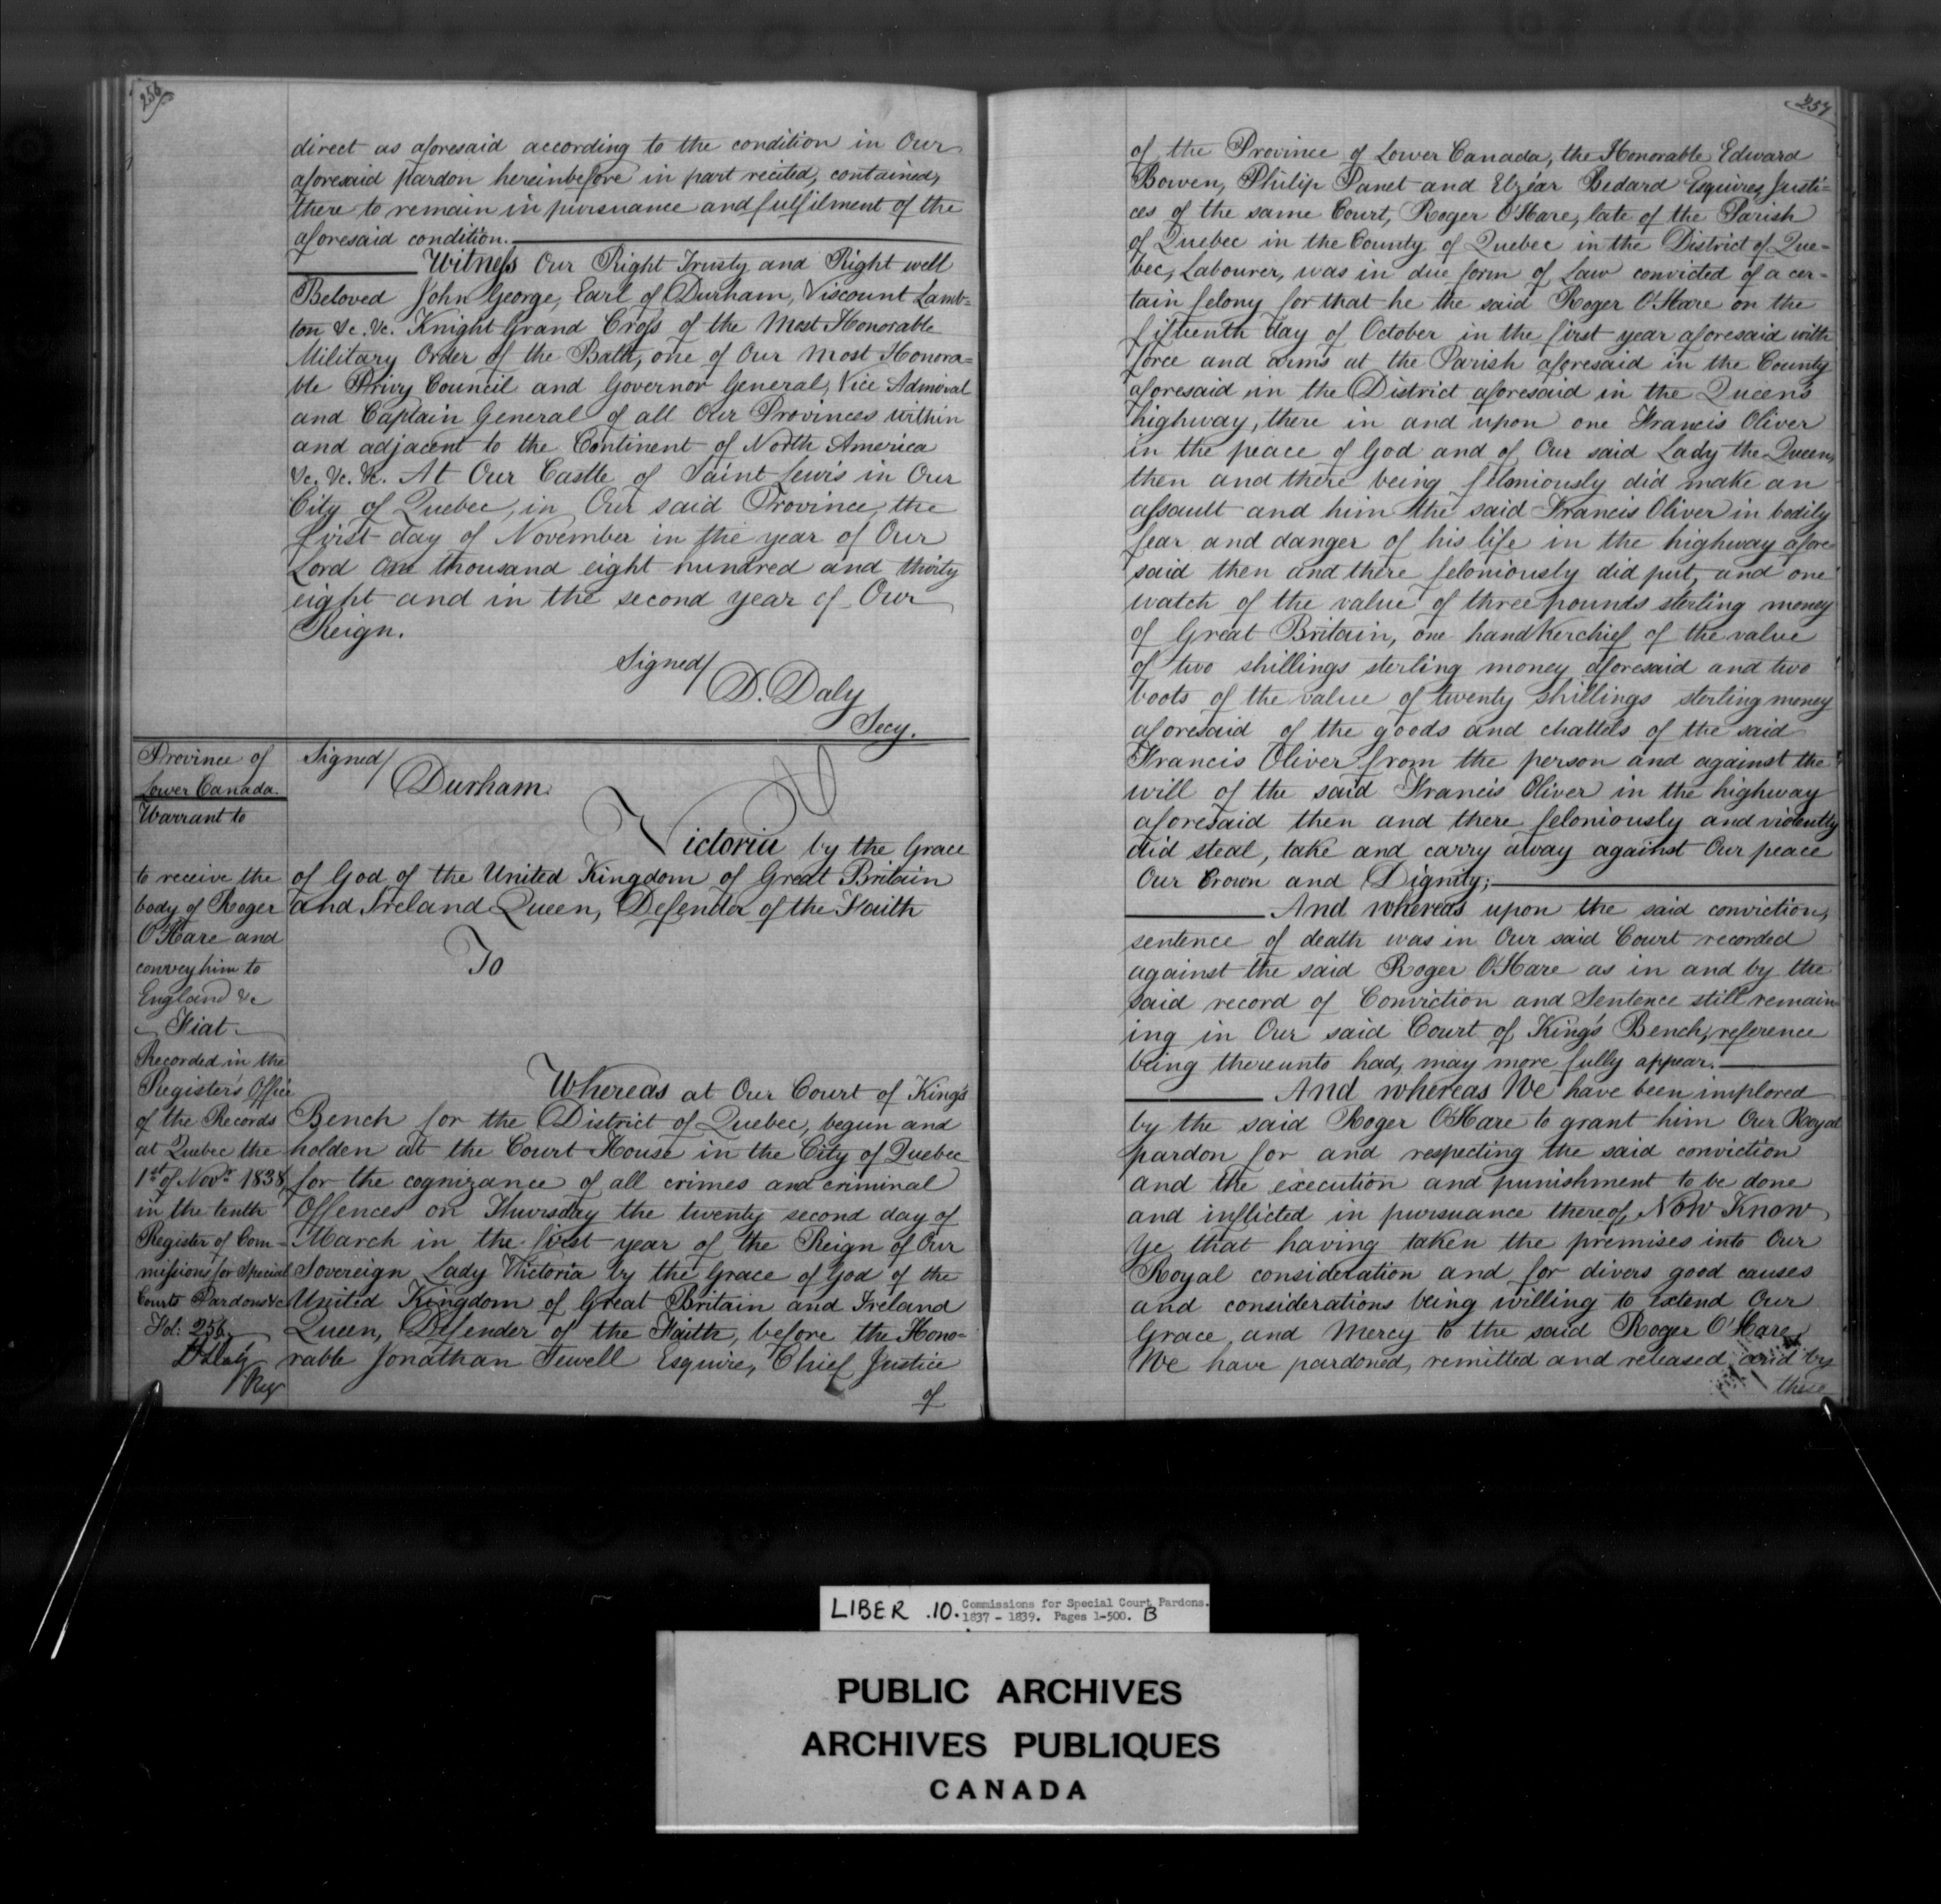 256
direct as aforesaid according to the condition in Our
aforesaid pardon hereinbefore in part recited, contained,
there to remain in pursuance and fulfilment of the
aforesaid condition.
Witness Our Right Trusty and Right well
Beloved John George, Earl of Durham, Viscount Lamb=
ton &c. &c. Knight Grand Cross of the Most Honorable
Military Order of the Bath, one of Our Most Honora=
ble Privy Council and Governor General, Vice Admiral
and Captain General of all Our Provinces within
and adjacent to the Continent of North America
&c. &c. &c. At Our Castle of Saint Lewis in Our
City of Quebec, in Our said Province, the
first day of November in the year of Our
Lord One thousand eight hundred and thirty
eight and in the second year of Our
Reign.
Signed/
D. Daly
Secy.
Province of
Lower Canada.
Warrant to
to receive the
body of Roger
O'Hare and
convey him to
England &c
Fiat
Recorded in the
Register's Office
of the Records
at Quebec the
1st of Novr. 1838
in the tenth
Register of Com-
missions for Special
Courts Pardons &c
Fol: 256
D Daly
Reg
Signed/
Durham
Victoria by the Grace
of God of the United Kingdom of Great Britain
and Ireland Queen, Defender of the Faith
To
Whereas at Our Court of King's
Bench for the District of Quebec, begun and
holden at the Court House in the City of Quebec
for the cognizance of all crimes and criminal
Offences on Thursday the twenty second day of
March in the first year of the Reign of Our
Sovereign Lady Victoria by the Grace of God of the
United Kingdom of Great Britain and Ireland
Queen, Defender of the Faith, before the Hono-
rable Jonathan Sewell Esquire, Chief Justice
of
257
of the Province of Lower Canada, the Honorable Edward
Bowen, Philip Panet and Elzéar Bedard Esquires Justi=
ces of the same Court, Roger O'Hare, late of the Parish
of Quebec in the County of Quebec in the District of Que-
bec, Labourer, was in due form of Law convicted of a cer-
tain felony for that he the said Roger O'Hare on the
fifteenth day of October in the first year aforesaid with
force and arms at the Parish aforesaid in the County
aforesaid in the District aforesaid in the Queen's
highway, there in and upon one Francis Oliver
in the peace of God and of Our said Lady the Queen,
then and there being feloniously did make an
assault and him the said Francis Oliver in bodily
fear and danger of his life in the highway afore
said then and there feloniously did put, and one
watch of the value of three pounds sterling money
of Great Britain, one handkerchief of the value
of two shillings sterling money aforesaid and two
boots of the value of twenty shillings sterling money
aforesaid of the goods and chattels of the said
Francis Oliver from the person and against the
will of the said Francis Oliver in the highway
aforesaid then and there feloniously and violently
did steal, take and carry away against Our peace
Our Crown and Dignity;
And whereas upon the said conviction,
sentence of death was in Our said Court recorded
against the said Roger O'Hare as in and by the
said record of Conviction and Sentence still remain
ing in Our said Court of King's Bench, reference
being thereunto had, may more fully appear.
And whereas We have been implored
by the said Roger O'Hare to grant him Our Royal
pardon for and respecting the said conviction
and the execution and punishment to be done
and inflicted in pursuance thereof, Now Know
Ye that having taken the premises into Our
Royal consideration and for divers good causes
and considerations being willing to extend Our
Grace and Mercy to the said Roger O'Hare,
We have pardoned, remitted and released and by
these
LIBER .10. Commissions for Special Court Pardons.
1837 - 1839. Pages 1-500. B
PUBLIC ARCHIVES
ARCHIVES PUBLIQUES
CANADA